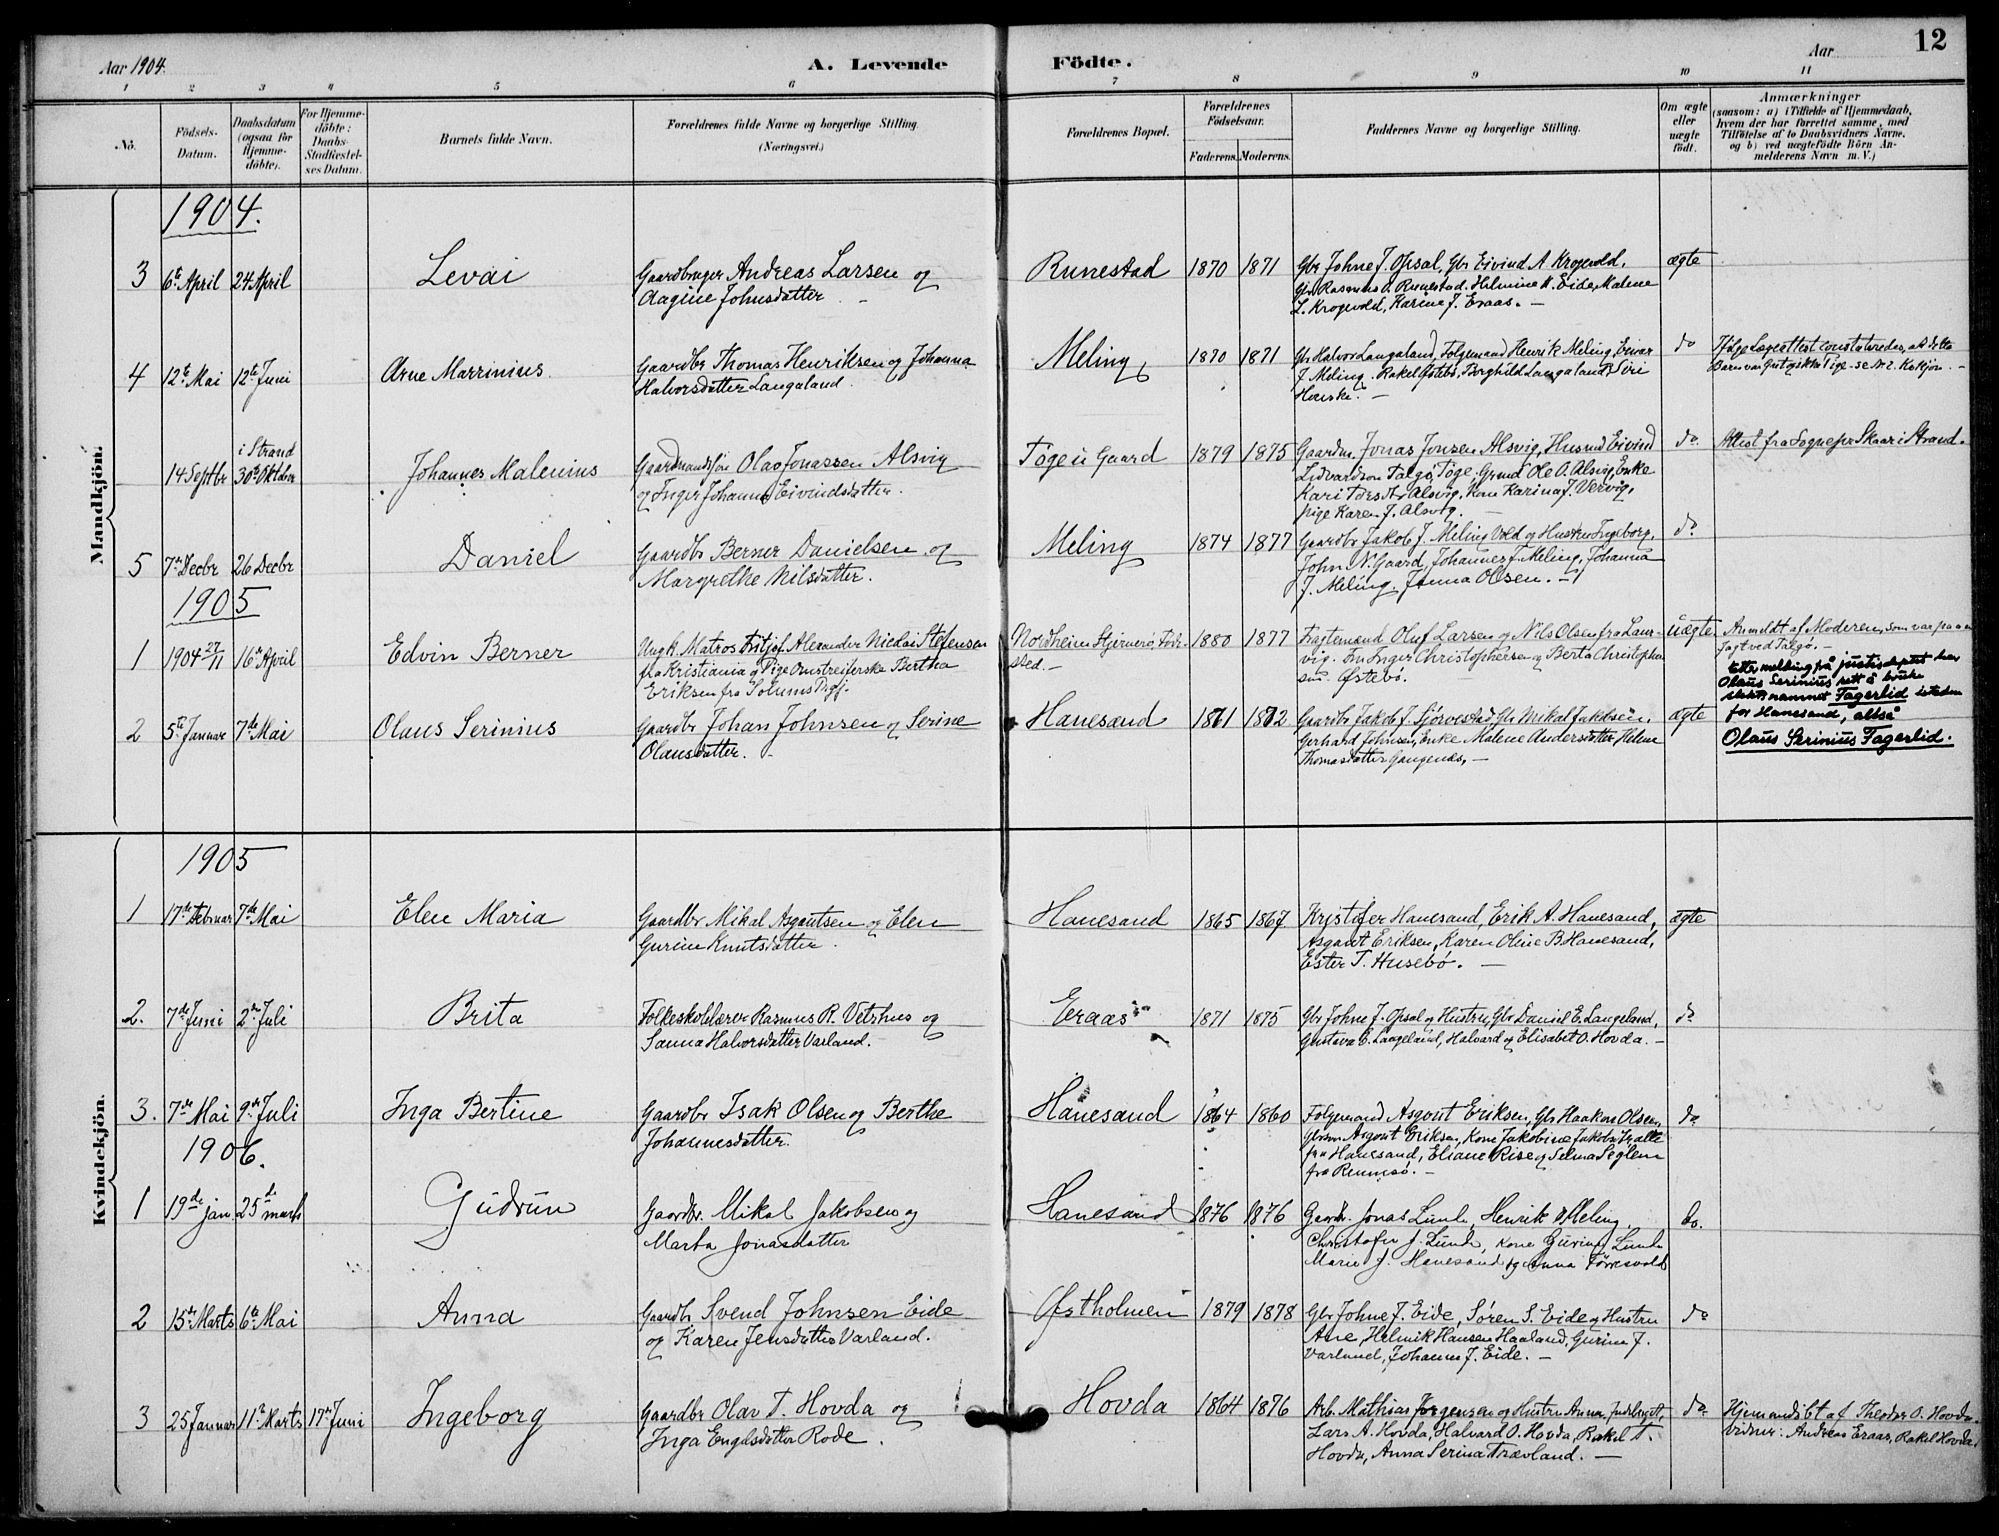 Aar 1904.
A. Levende Födte.
Aar
12
1 2 3 4 5 6 7 8 9 10 11
No.
Födsels-
Datum.
Daabsdatum
(ogsaa for
Hjemme-
döbte).
For Hjemme-
döbte:
Daabs-
Stadfæstel-
ses Datum.
Barnets fulde Navn.
Forældrenes fulde Navne og borgerlige Stilling.
(Næringsvei.)
Forældrenes Bopæl.
Forældrenes
Födselsaar.
Faderens. Moderens.
Faddernes Navne og borgerlige Stilling.
Om ægte
eller
uægte
födt.
Anmærkninger
(saasom: a) i Tilfælde af Hjemmedaab,
hvem der har forrettet samme, med
Tilföielse af to Daabsvidners Navne,
og b) ved uægtefödte Börn An-
melderens Navn m. V.)
Mandkjön.
1904.
3 6te April 24 April
Levai
Gaardbruger Andreas Larsen og
Aagine Johnsdatter.
Runestad 1870 1871
Gbr Johne J. Opsal, Gbr Eivind A Krogevold,
Gbr Rasmus O. Runestad. Helmine M. Eide, Malene
L. Krogevold, Karine J. Eraas.
ægte
4 12te Mai 12te Juni
Arne Marrinius.
Gaardbr Thomas Henriksen og Johanna
Halvorsdatter Langaland.
Meling 1870 1871
Gbr Halvor Langaland, Folgemand Henrik Meling, Einar
J. Meling. Rakel Østebö, Borghild Langaland, Siri
do
Ifölge Lægeattest constateredes, at dette
14 Septbr i Strand
30te Oktober
Johannes Malenius
Gaardmandssön Olav Jonassen Alsvig
og Inger Johanna Eivindsdatter.
Töge ü Gaard 1879 1875
Gaardm. Jonas Jonsen Alsvig, Husmd Eivind
Lidvardson Talgö, Töge. Grmd Ole O. Alsvig, Enke
Kari Alsvig, Kone Karina J. Vervig,
pige Karen J. Alsvig.
do
Attest fra Sognepr Skaar i Strand.
5 7de Decbr 26 Decbr
Daniel
Gaardbr Berner Danielsen og
Margrethe Nilsdatter.
Meling 1874 1877
Gaardbr Jakob J. Meling Vold og Hustru Ingeborg,
John N. Gaard, Johannes J. Meling, Johanna
J. Meling. Janna Olsen.
do
1905
1 1904 27/11 16de April
Edvin Berner
Ungk. Matros Fritjof Alexander Nicolai Stefensen
fra Kristiania og Pige Omstreiferske Bertha
Eriksen fra Solums Prgj.
Nordheim Stjernerö, Föde-
sted. 1880 1877
Fragtemænd Oluf Larsen og Nils Olsen fra Laur-
vig. Fru Inger Christophersen og Berta Christopher-
sen. Østebö.
uægte
Anmeldt af Moderen, som var paa en
Jagt ved Talgø.
2 5te Januar 7de Mai
Olaus Serinius
Gaardbr Johan Johnsen og Serine
Olausdatter.
Hanesand 1871 1872
Gaardbr Jakob J. Sjørvestad, Gbr Mikal Jakobsen,
Gerhard Johnsen, Enke Malene Andersdatter, Helene
Thomasdatter Gangenæs.
ægte
Etter melding frå justisdeptet har
Olaus Serinius rett å bruke
slektsnamnet Fagerlid istaden
for Hanesand, altså
Olaus Serinius Fagerlid.
Kvindekjön.
1905
1 17de Februar 7de Mai
Elen Maria
Gaardbr Mikal Asgautsen og Elen
Gurine Knutsdatter.
Hanesand 1865 1867.
Kristofer Hanesand, Erik A. Hanesand,
Asgaut Eriksen, Karen Oline B. Hanesand,
Ester T. Husebö.
ægte
2. 7de Juni 2den Juli
Brita
Folkeskolelærer Rasmus R. Vetrhus og
Sanna Halvorsdatter Varland.
Eraas 1871 1875
Gbr Johne J. Opsal og Hustru, Gbr Daniel E. Langeland,
Gustava E. Langeland, Halvard og Elisabet O. Hovda.
do
3. 7de Mai 9de Juli
Inga Bertine
Gaardbr Isak Olsen og Berthe
Johannesdatter.
Hanesand 1864 1860
Folgemand Asgaut Eriksen, Gbr Haakon Olsen,
Gbrsøn Asgaut Eriksen, Kone Jakobine Jakobsdtr, alle
fra Hanesand, Eliane Rise og Selma Seglem
fra Rennesö.
do
1906.
1 19de jan 25de marts
Gudrun
Gaardbr. Mikal Jakobsen og
Marta Jonasdatter
Hanesand 1876 1876
Gaardbr. Jonas Lunde, Henrik Meling,
Christofer J. Lunde, Kone Gurine Lunde
Marie J. Hanesand og Anna Törresvold
do.
2 15de Marts 6te Mai
Anna
Gaardbr Svend Johnsen Eide
og Karen Jensdatter Varland.
Østholmen 1879 1878
Gbr Johne J. Eide, Søren S. Eide og Hustru
Ane, Helmik Hansen Haaland, Gurine J.
Varland, Johanne J. Eide.
do
3 25 Januar 11te Marts 17de Juni
Ingeborg
Gaardbr Olav T. Hovda og
Inga Engelsdatter Rode.
Hovda 1864 1876
Arb. Mathias Jørgensen og Hustru Anna, Judeberget,
Lars A. Hovda, Halvard O. Hovda, Rakel T.
Hovda, Anna Serina Trævland.
do
Hjemmedöbt af Theodor O. Hovda.
Vidner: Andreas Eraas, Rakel Hovda.